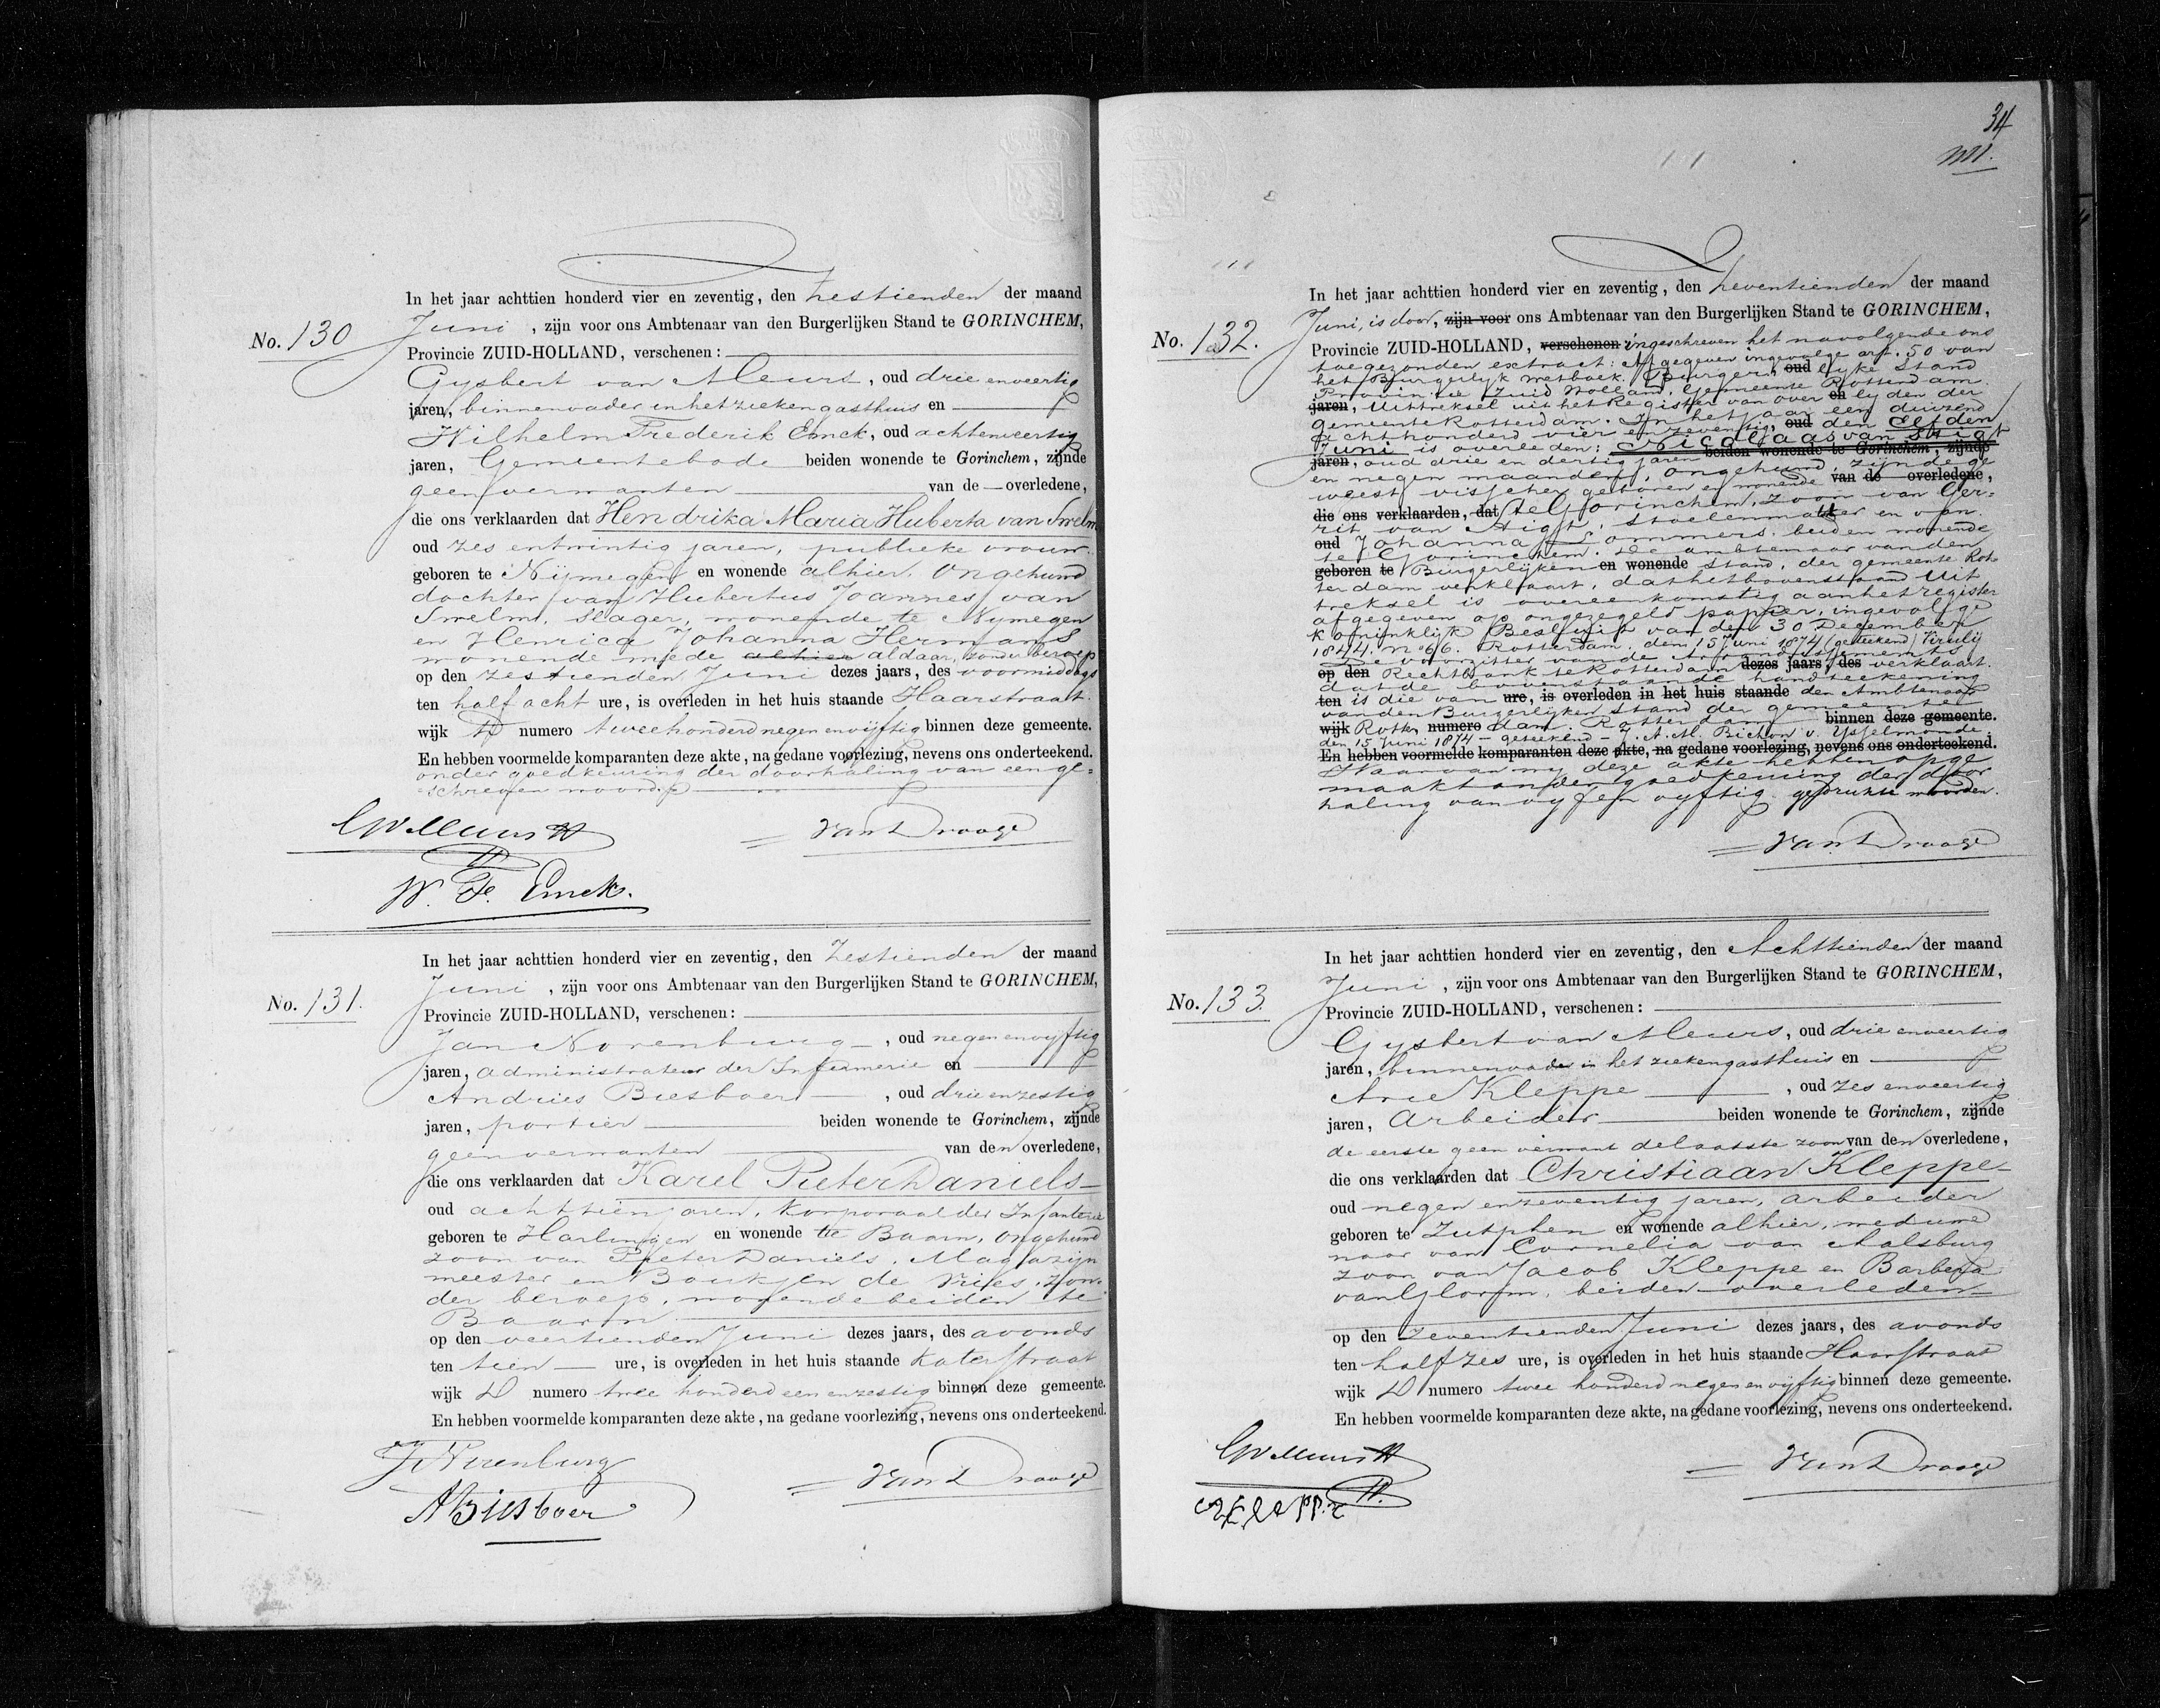 In het jaar achttien honderd vier en zeventig, den Zestienden der maand
No. 130
Juni, zijn voor ons Ambtenaar van den Burgerlijken Stand te GORINCHEM,
Provincie ZUID-HOLLAND, verschenen:
Gysbert van Meurs, oud drie en veertig
jaren, binnenvader in het ziekengasthuis en
Wilhelm Frederik Emck, oud achtenveertig
jaren, Gemeentebode beiden wonende te Gorinchem, zijnde
geen verwanten van de overledene,
die ons verklaarden dat Hendrika Maria Huberta van Swelm
oud zes entwintig jaren, publieke vrouw
geboren te Nijmegen en wonende alhier, Ongehuwd
dochter van Hubertus Joannes van
Swelm, slager, wonende te Nymegen
en Henrica Johanna Hermans
wonende mede alhier aldaar, zonder beroep
op den zestienden Juni dezes jaars, des voormiddags
ten half acht ure, is overleden in het huis staande Haarstraat
wijk D numero tweehonderd negen en vijftig binnen deze gemeente.
En hebben voormelde komparanten deze akte, na gedane voorlezing, nevens ons onderteekend.
onder goedkeuring der doorhaling van een ge=
schreven woord
GVMeurs
van 't Draage
W. F. Emck.
In het jaar achttien honderd vier en zeventig, den Zestienden der maand
No. 131.
Juni, zijn voor ons Ambtenaar van den Burgerlijken Stand te GORINCHEM,
Provincie ZUID-HOLLAND, verschenen:
Jan Norenburg, oud negen en vyftig
jaren, administrateur der Infirmerie en
Andries Biesboer, oud drie en zestig
jaren, portier beiden wonende te Gorinchem, zijnde
geen verwanten van den overledene,
die ons verklaarden dat Karel Pieter Daniels
oud achttien jaren, Korporaal der Infanterie
geboren te Harlingen en wonende te Baarn, Ongehuwd
zoon van Pieter Daniels, Magazijn
meester en Boukjen de Vries, zon=
der beroep, wonende beiden te
Baarn
op den veertienden Juni dezes jaars, des avonds
ten tien ure, is overleden in het huis staande Katerstraat
wijk D numero twee honderd een en zestig binnen deze gemeente.
En hebben voormelde komparanten deze akte, na gedane voorlezing, nevens ons onderteekend.
J Norenburg
van 't Draage
ABiesboer
34
In het jaar achttien honderd vier en zeventig, den Zeventienden der maand
No. 132.
Juni, is door, zijn voor ons Ambtenaar van den Burgerlijken Stand te GORINCHEM,
Provincie ZUID-HOLLAND, verschenen ingeschreven het navolgende ons
toegezonden extract: Afgegeven ingevolge art. 50 van
het Burgerlyk Wetboek. Burger oud lyke Stand
Provincie Zuid Holland, Gemeente Rotterdam.
jaren, Uittreksel uit het Register van over en lyden der
gemeente Rotterdam. In het jaar een duizend
achthonderd vier en zeventig, oud den Elfden
Juni is overleden: Nicolaas van Stigt
beiden wonende te Gorinchem, zijnde
jaren, oud drie en dertig jaren
en negen maanden, ongehuwd, zijnde ge
weest visscher, geboren en wonende van de overledene,
die ons verklaarden, dat te Gorinchem, zoon van Ger=
rit van Stigt, stoelenmaker en van
oud Johanna Sommers, beiden wonende
te Gorinchem. De ambtenaar van den
geboren te Burgerlijken en wonende Stand, der gemeente Rot
terdam verklaart, dat het bovenstaand Uit
treksel is overeenkomstig aan het register
afgegeven op ongezegeld papier, ingevolge
Koninklijk Besluit van den 30 December
1844. no 66. Rotterdam, den 15 Juni 1874 (geteekend) Viruly
De voorzitter van de Arrondissements
op den Rechtbank te Rotterdam dezes jaars, des verklaart
dat de bovenstaande handteekening
ten is die van ure, is overleden in het huis staande den Ambtenaar
van den Burgerlyken Stand der gemeente
wijk Rotter numero dam, Rotterdam binnen deze gemeente.
den 15 Juni 1874 - geteekend - J. A. M. Bichon v. Ysselmonde.
En hebben voormelde komparanten deze akte, na gedane voorlezing, nevens ons onderteekend.
Waarvan wy deze akte hebben opge
maakt onder goedkeuring der door
haling van vyf en vyftig gedrukte woorden.
van 't Draage
In het jaar achttien honderd vier en zeventig, den Achttienden der maand
No. 133.
Juni, zijn voor ons Ambtenaar van den Burgerlijken Stand te GORINCHEM,
Provincie ZUID-HOLLAND, verschenen:
Gysbert van Meurs, oud drie enveertig
jaren, binnenvader in het ziekengasthuis en
Arie Kleppe, oud zes enveertig
jaren, Arbeider beiden wonende te Gorinchem, zijnde
de eerste geen verwant de laatste zoon van den overledene,
die ons verklaarden dat Christiaan Kleppe
oud negen enzeventig jaren, arbeider
geboren te Zutphen en wonende alhier, weduwe
naar van Cornelia van Malsburg
zoon van Jacob Kleppe en Barbera
van Glorm, beiden overleden
op den zeventienden Juni dezes jaars, des avonds
ten half zes ure, is overleden in het huis staande Haarstraat
wijk D numero twee honderd negen en vijftig binnen deze gemeente.
En hebben voormelde komparanten deze akte, na gedane voorlezing, nevens ons onderteekend.
GVMeurs
van 't Draage
A Kleppe